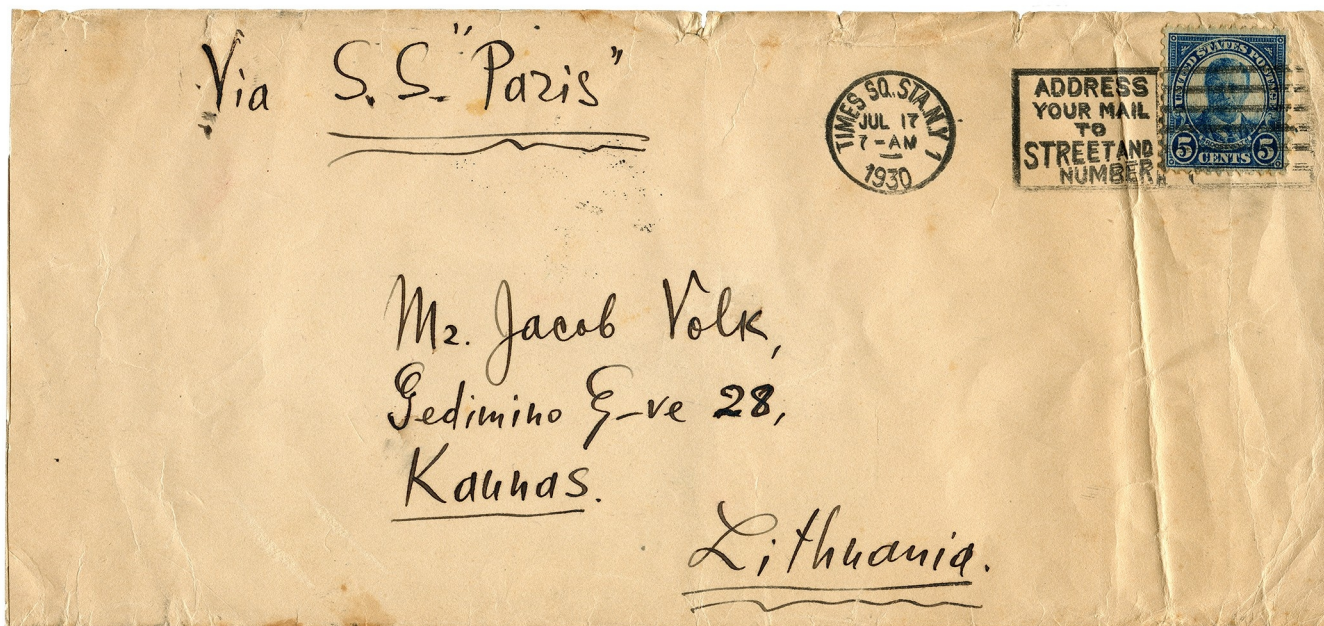 Via S.S. "Paris"
TIMES SQ. STA. N.Y. 1
JUL 17
7-AM
1930
ADDRESS
YOUR MAIL
TO
STREET AND
NUMBER
UNITED STATES POSTAGE
5 CENTS 5
Mr. Jacob Volk,
Gedimino G-ve 28,
Kaunas.
Lithuania.